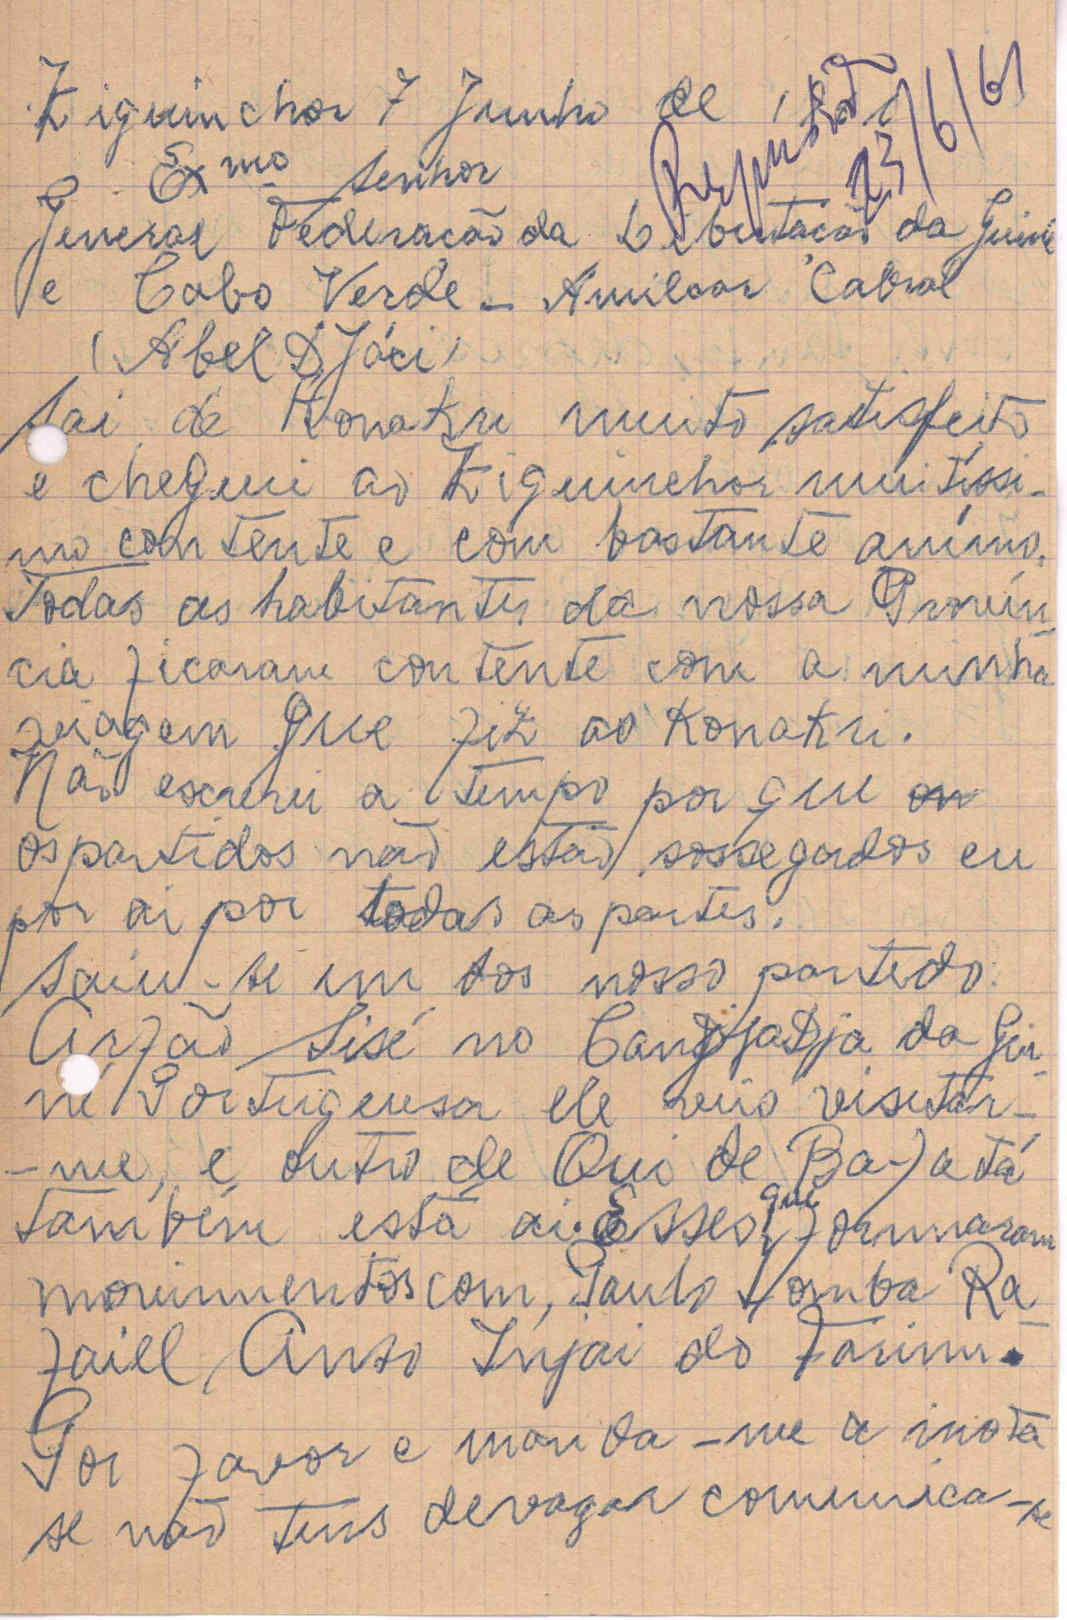 Ziguinchor 7 Junho de
Respondido
23/6/61
Exmo Senhor
General Federacão da Libertacão da Guiné
e Cabo Verde - Amilcar Cabral
(Abel DJáci)
Sai de Konakri muito satisfeito
e cheguei ao Ziguinchor muitissi-
mo contente e com bastante animo.
Todas as habitantes da nossa Provín
cia ficaram contente com a minha
viagem que fiz ao Konakri.
Não escrevi a tempo por que
os partidos não estão sossegados eu
por ai por todas as partes.
Saiu-se um dos nosso partido
Arfão Sisé no CandjaDja da Gui
né Portuguesa ele veio visitar-
-me, e outro de Que de Ba-fatá
também está ai. Esses que formaram
movimentos com, Paulo Lomba Ra
faill, Anso Injai do Farim.
Por favor e manda-me a inota
se não tens devagar comunica-se